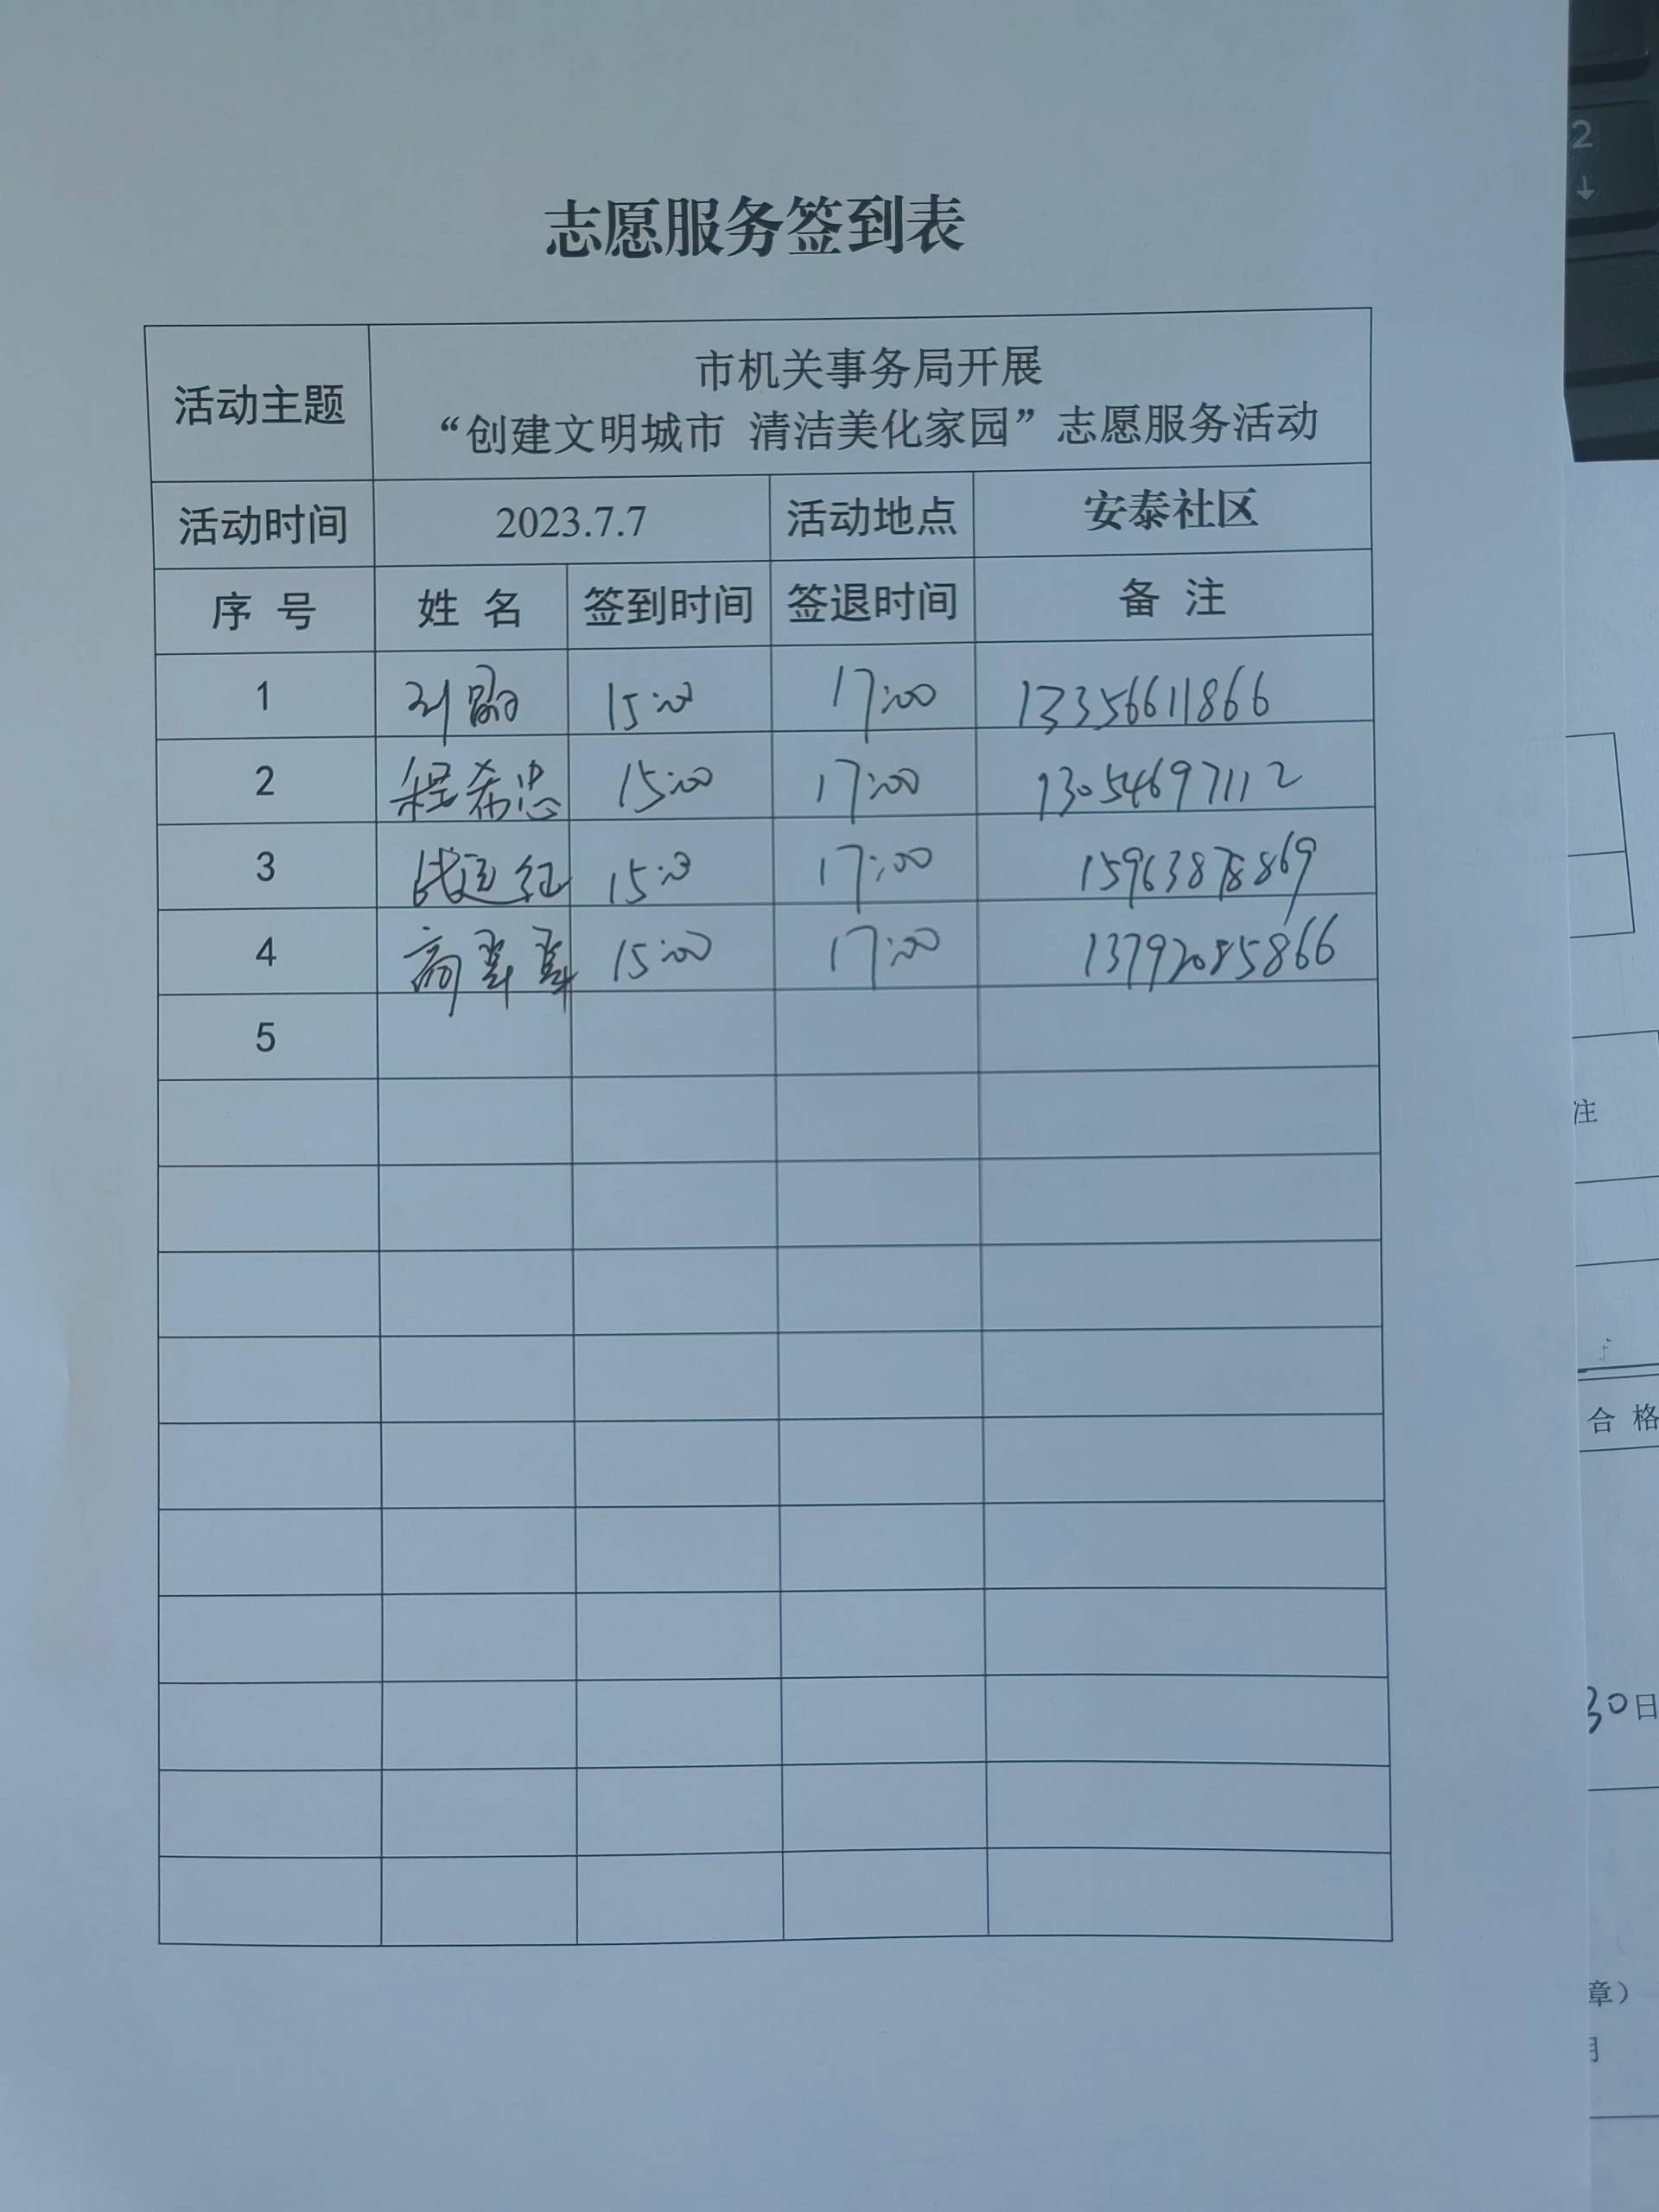 志愿服务签到表
活动主题
市机关事务局开展
“创建文明城市 清洁美化家园”志愿服务活动
活动时间 2023.7.7 活动地点 安泰社区
序号 姓名 签到时间 签退时间 备注
1 刘 15:00 17:00 13356611866
2 程希忠 15:00 17:00 13054697112
3 战 红 15:00 17:00 15963878869
4 高翠翠 15:00 17:00 13792085866
5
2
↓
注
合格
30日
章）
月